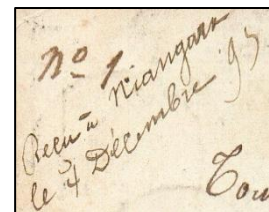 No 1
Reçu à Niangara
le 4 Décembre 95
Tou